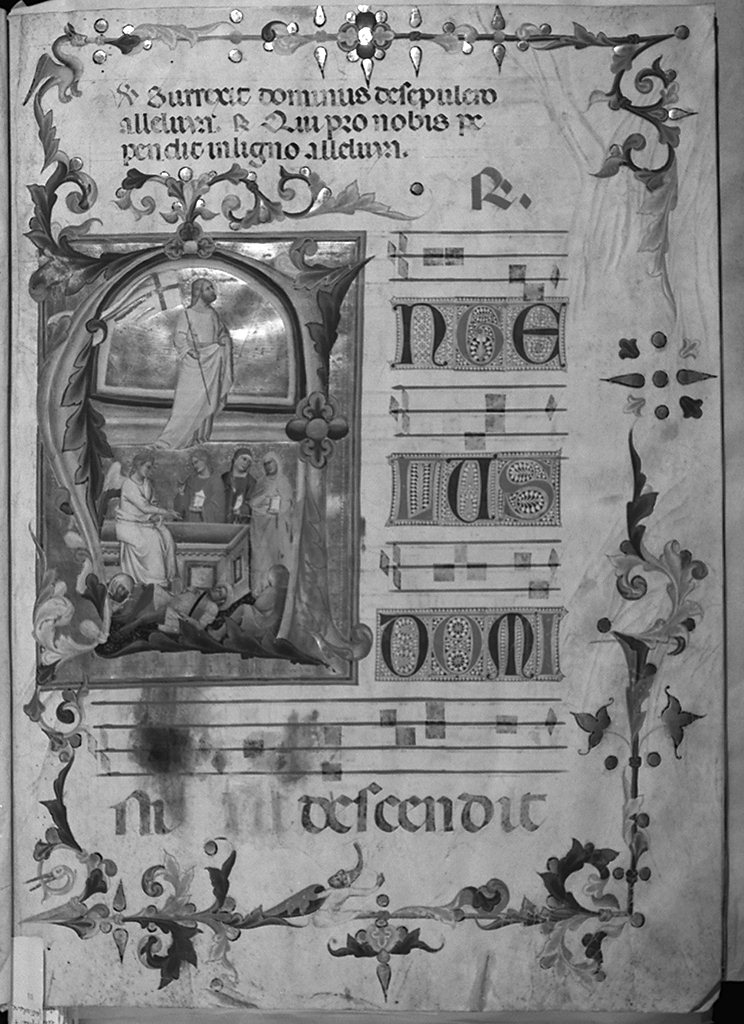 ℣ Surrexit dominus de sepulcro
alleluya. ℟ Qui pro nobis pe
pendit in ligno alleluya.
℟.
A
NGE
LUS
DOMI
descendit